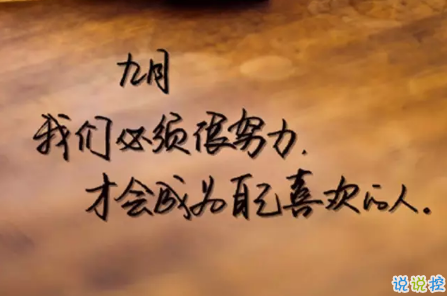 九月
我们必须很努力.
才会成为自己喜欢的人.
说说控